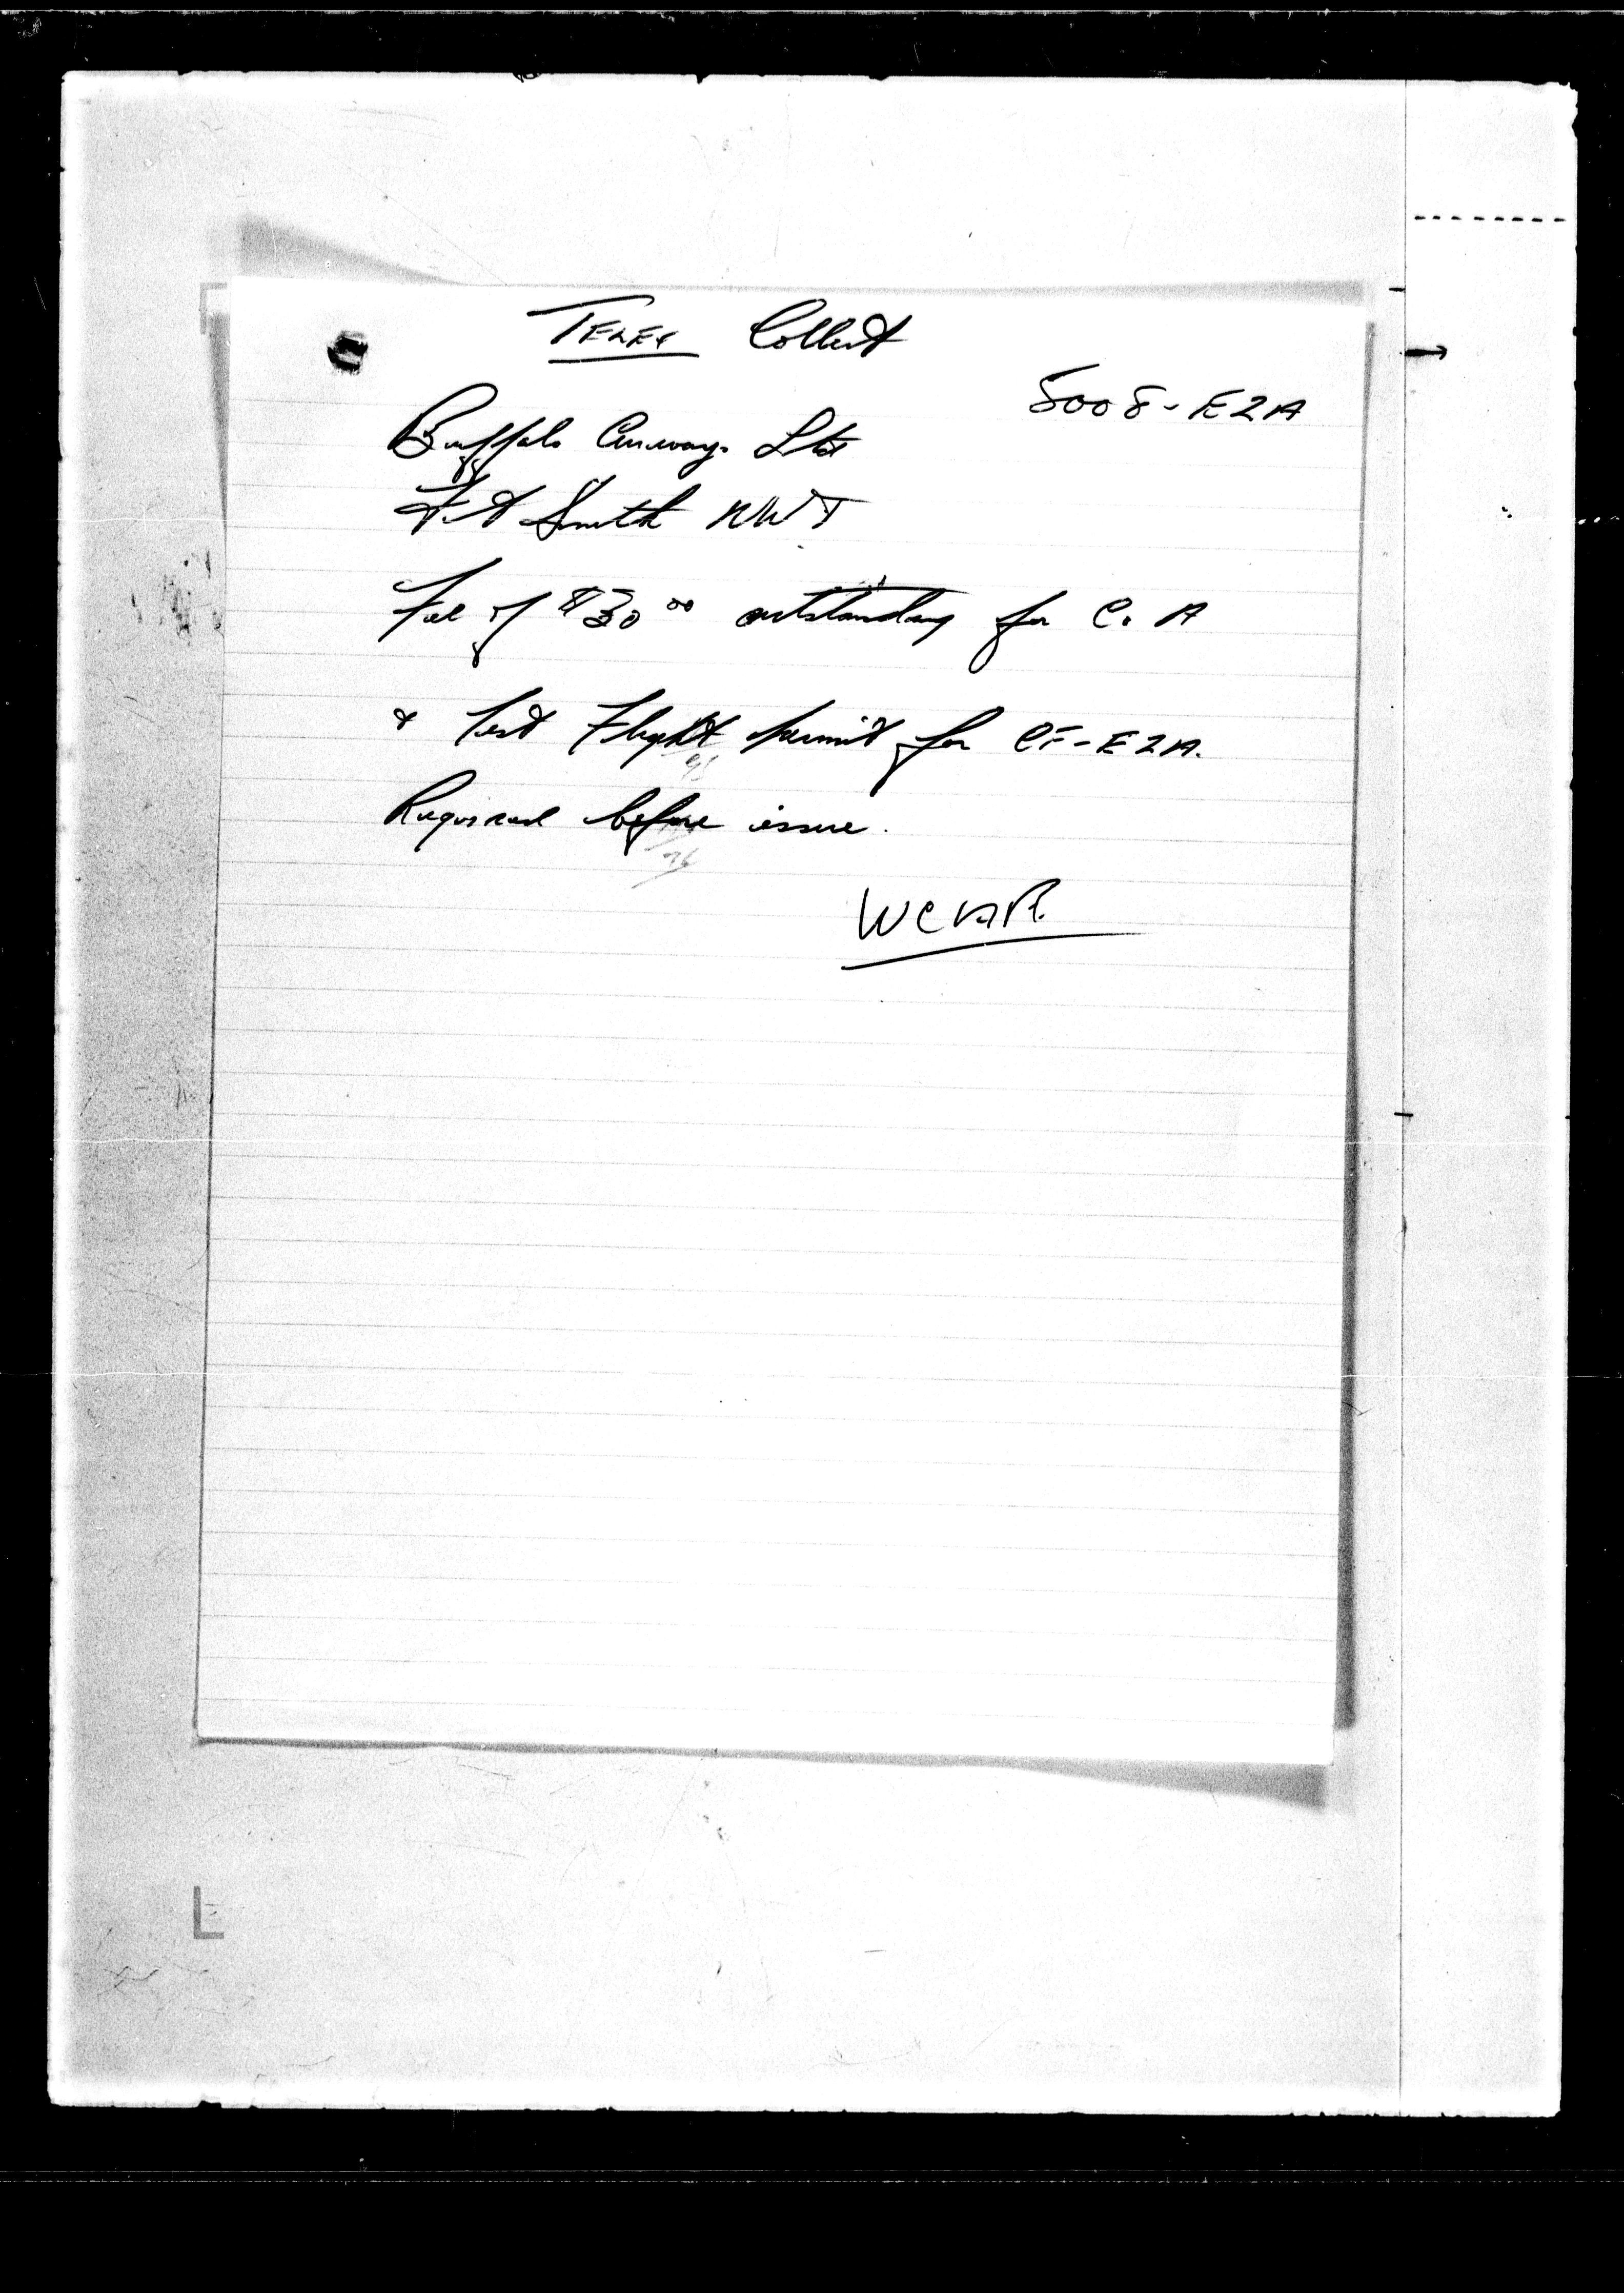 TELEX Collect
5008-EZA
Buffalo Airways Ltd
Fort Smith NWT
Fee of $30.00 outstanding for C. A
& Test Flight permit for CF-EZA.
Required before issue.
L